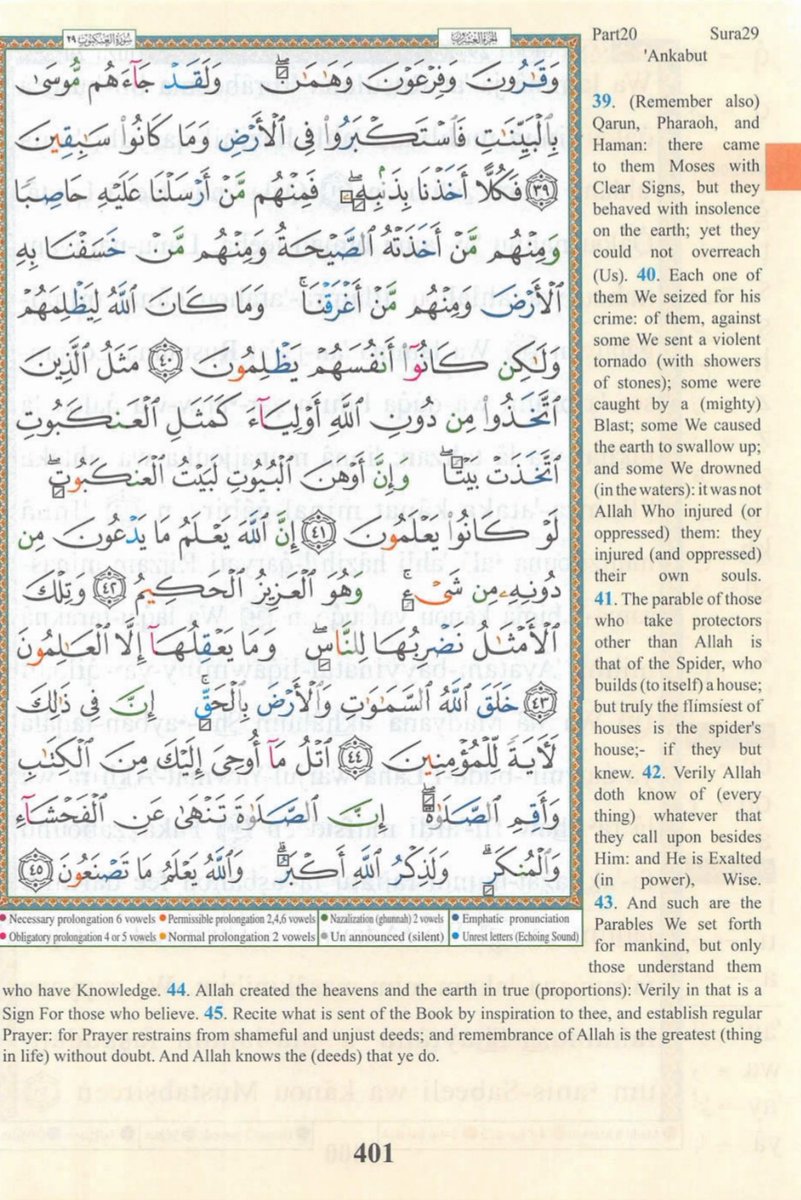 الجُزءُ العِشرُونَ
سُورَةُ العَنكَبُوتِ ٢٩
وَقَٰرُونَ وَفِرْعَوْنَ وَهَٰمَٰنَ ۖ وَلَقَدْ جَآءَهُم مُّوسَىٰ
بِٱلْبَيِّنَٰتِ فَٱسْتَكْبَرُوا۟ فِى ٱلْأَرْضِ وَمَا كَانُوا۟ سَٰبِقِينَ
٣٩ فَكُلًّا أَخَذْنَا بِذَنۢبِهِۦ ۖ فَمِنْهُم مَّنْ أَرْسَلْنَا عَلَيْهِ حَاصِبًا
وَمِنْهُم مَّنْ أَخَذَتْهُ ٱلصَّيْحَةُ وَمِنْهُم مَّنْ خَسَفْنَا بِهِ
ٱلْأَرْضَ وَمِنْهُم مَّنْ أَغْرَقْنَا ۚ وَمَا كَانَ ٱللَّهُ لِيَظْلِمَهُمْ
وَلَٰكِن كَانُوٓا۟ أَنفُسَهُمْ يَظْلِمُونَ ٤٠ مَثَلُ ٱلَّذِينَ
ٱتَّخَذُوا۟ مِن دُونِ ٱللَّهِ أَوْلِيَآءَ كَمَثَلِ ٱلْعَنكَبُوتِ
ٱتَّخَذَتْ بَيْتًا ۖ وَإِنَّ أَوْهَنَ ٱلْبُيُوتِ لَبَيْتُ ٱلْعَنكَبُوتِ ۖ
لَوْ كَانُوا۟ يَعْلَمُونَ ٤١ إِنَّ ٱللَّهَ يَعْلَمُ مَا يَدْعُونَ مِن
دُونِهِۦ مِن شَىْءٍ ۚ وَهُوَ ٱلْعَزِيزُ ٱلْحَكِيمُ ٤٢ وَتِلْكَ
ٱلْأَمْثَٰلُ نَضْرِبُهَا لِلنَّاسِ ۖ وَمَا يَعْقِلُهَآ إِلَّا ٱلْعَٰلِمُونَ
٤٣ خَلَقَ ٱللَّهُ ٱلسَّمَٰوَٰتِ وَٱلْأَرْضَ بِٱلْحَقِّ ۚ إِنَّ فِى ذَٰلِكَ
لَءَايَةً لِّلْمُؤْمِنِينَ ٤٤ ٱتْلُ مَآ أُوحِىَ إِلَيْكَ مِنَ ٱلْكِتَٰبِ
وَأَقِمِ ٱلصَّلَوٰةَ ۖ إِنَّ ٱلصَّلَوٰةَ تَنْهَىٰ عَنِ ٱلْفَحْشَآءِ
وَٱلْمُنكَرِ ۗ وَلَذِكْرُ ٱللَّهِ أَكْبَرُ ۗ وَٱللَّهُ يَعْلَمُ مَا تَصْنَعُونَ ٤٥
Necessary prolongation 6 vowels Permissible prolongation 2,4,6 vowels Nazalization (ghunnah) 2 vowels Emphatic pronunciation
Obligatory prolongation 4 or 5 vowels Normal prolongation 2 vowels Un announced (silent) Unrest letters (Echoing Sound)
Part20 Sura29
'Ankabut
39. (Remember also)
Qarun, Pharaoh, and
Haman: there came
to them Moses with
Clear Signs, but they
behaved with insolence
on the earth; yet they
could not overreach
(Us). 40. Each one of
them We seized for his
crime: of them, against
some We sent a violent
tornado (with showers
of stones); some were
caught by a (mighty)
Blast; some We caused
the earth to swallow up;
and some We drowned
(in the waters): it was not
Allah Who injured (or
oppressed) them: they
injured (and oppressed)
their own souls.
41. The parable of those
who take protectors
other than Allah is
that of the Spider, who
builds (to itself) a house;
but truly the flimsiest of
houses is the spider's
house;- if they but
knew. 42. Verily Allah
doth know of (every
thing) whatever that
they call upon besides
Him: and He is Exalted
(in power), Wise.
43. And such are the
Parables We set forth
for mankind, but only
those understand them
who have Knowledge. 44. Allah created the heavens and the earth in true (proportions): Verily in that is a
Sign For those who believe. 45. Recite what is sent of the Book by inspiration to thee, and establish regular
Prayer: for Prayer restrains from shameful and unjust deeds; and remembrance of Allah is the greatest (thing
in life) without doubt. And Allah knows the (deeds) that ye do.
401